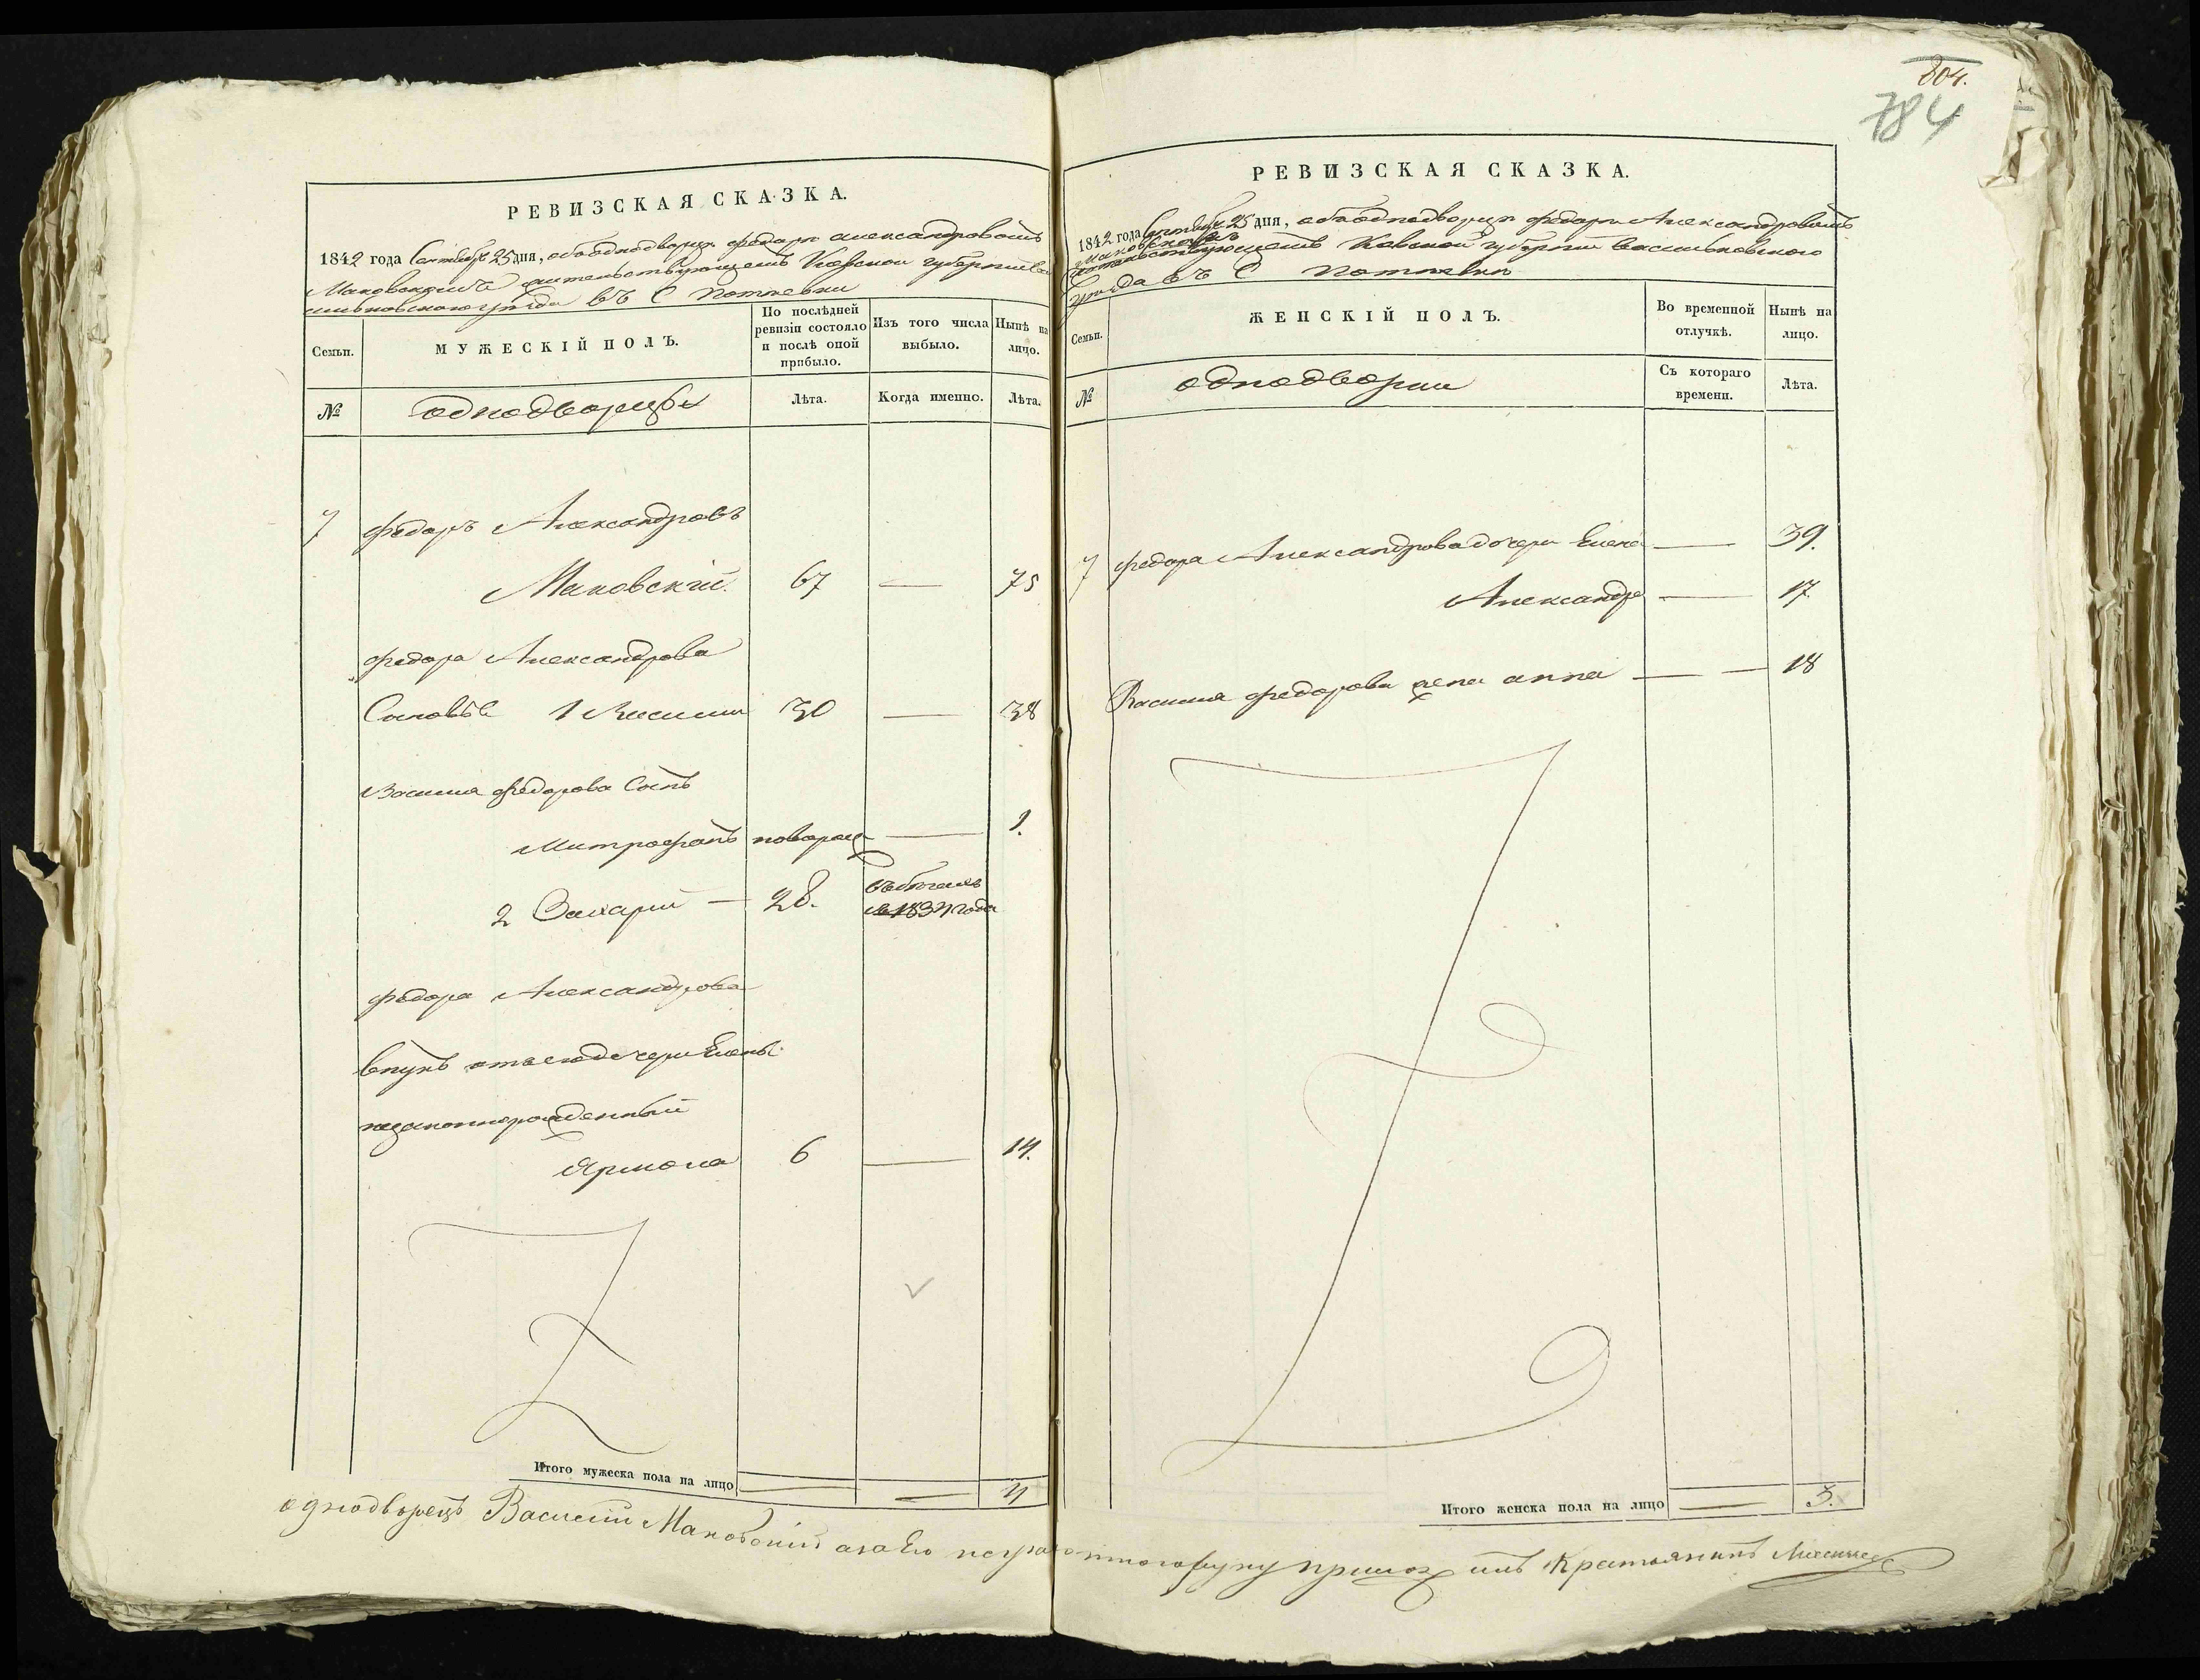 804.
784
РЕВИЗСКАЯ СКАЗКА.
1842 года Сентября 25 дня, объ однодворцѣ Федорѣ Александровомъ
Маковскомъ жительствующемъ Кіевской губерніи Ва
сильковского уѣзда въ С
Семьи.
МУЖЕСКІЙ ПОЛЪ.
По послѣдней ревизіи состояло и послѣ оной прибыло.
Изъ того числа выбыло.
Нынѣ на лицо.
№
однодворцы
Лѣта.
Когда именно.
Лѣта.
7 Федоръ Александровъ
Маковскій. 67 — 75
Федора Александрова
Сыновья 1 Василий 30 — 38
Василия Федорова Сынъ
Митрофанъ новорож — 1.
2 Захарий — 28. въ бегахъ
1834 года
Федора Александрова
внукъ отъ его дочери Елены
незаконнорожденный
Ярмола 6 — 14.
Итого мужеска пола на лицо — 4
РЕВИЗСКАЯ СКАЗКА.
1842 года Сентября 25 дня, объ однодворцѣ Федорѣ Александровомъ
Маковскомъ
жительствующемъ Кіевской губерніи Васильковского
уѣзда въ С
Семьи.
ЖЕНСКІЙ ПОЛЪ.
Во временной отлучкѣ.
Нынѣ на лицо.
№
однодворки
Съ котораго времени.
Лѣта.
7 Федора Александрова дочери Елена — 39.
Александра — 17
Василия Федорова жена анна — — 18
Итого женска пола на лицо — 3.
однодворецъ Василий Маковский а за его неграмотного руку приложилъ Крестьянинъ